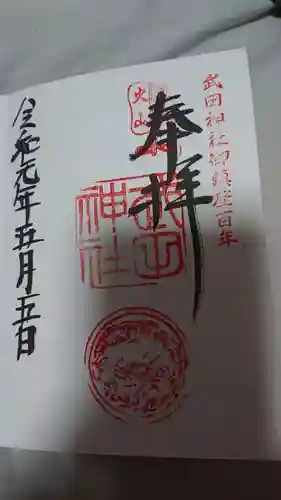 武田神社御鎮座百年
奉拝
火山
武田
神社
令和元年五月五日